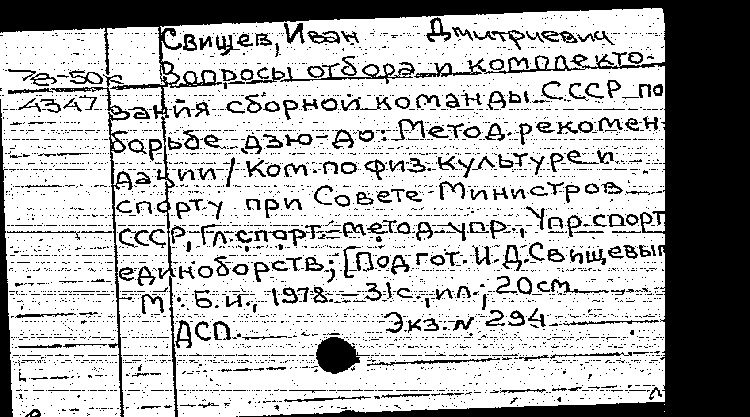 Свищев, Иван Дмитриевич
78-50к Вопросы отбора и комплекто-
4347 вания сборной команды СССР по
борьбе дзю-до: Метод. рекомен-
дации / Ком. по физ. культуре и
спорту при Совете Министров
СССР, Гл. спорт.-метод. упр., Упр. спорт
единоборств; [Подгот. И.Д. Свищевым
М.: Б.и., 1978. - 31 с., ил.; 20 см.
ДСП. Экз. № 294